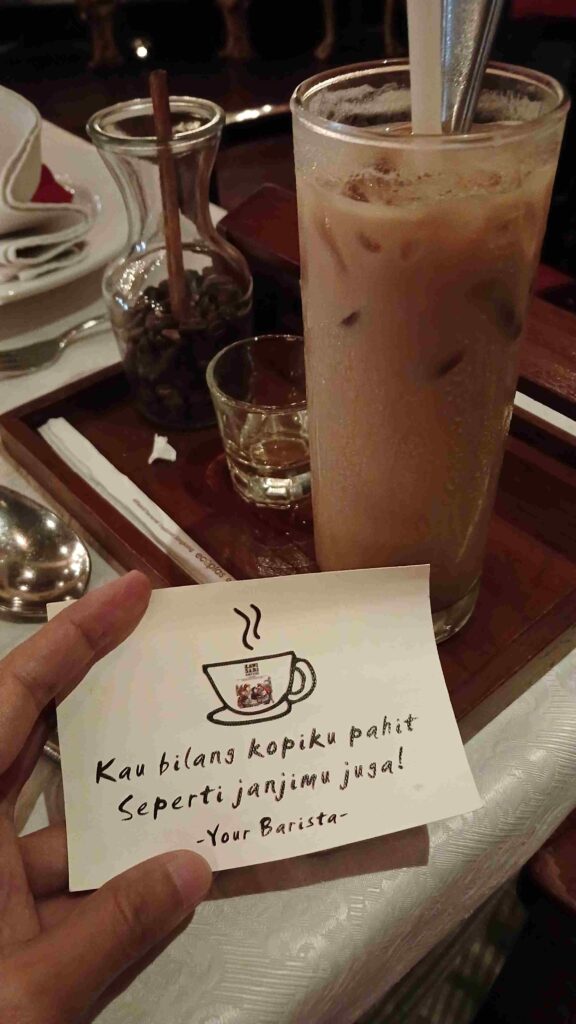 Kau bilang kopiku pahit
Seperti janjimu juga!
-Your Barista-